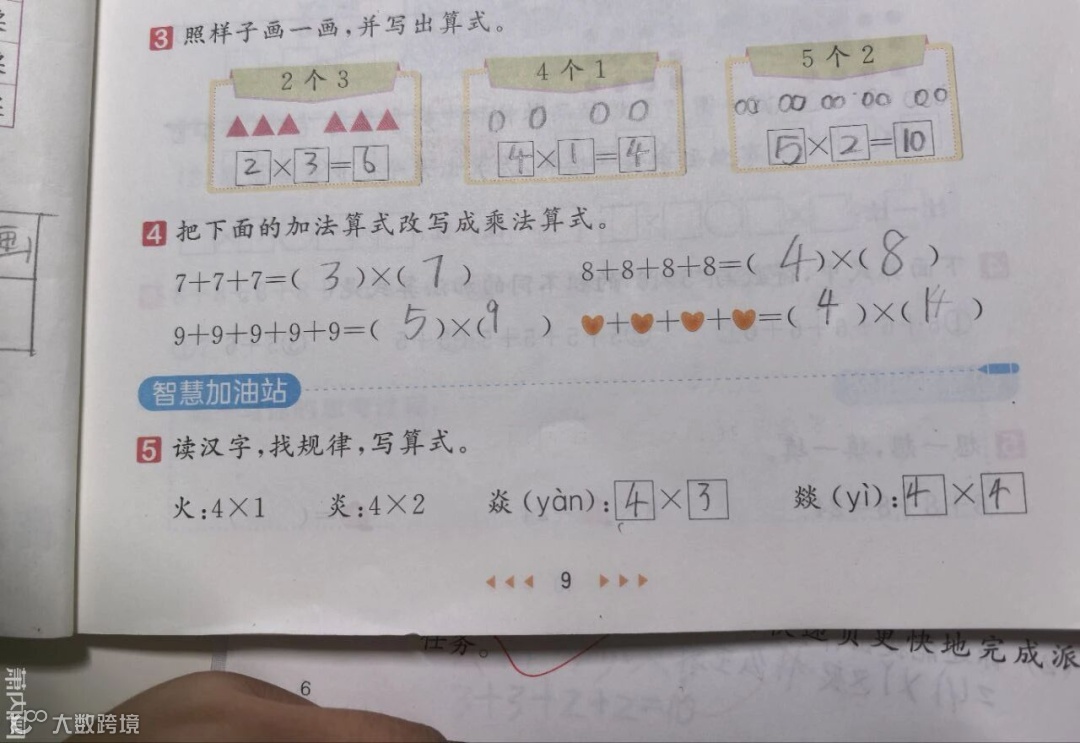 3 照样子画一画，并写出算式。
2个3 4个1 5个2
2×3=6 4×1=4 5×2=10
4 把下面的加法算式改写成乘法算式。
7+7+7=( 3 )×( 7 ) 8+8+8+8=( 4 )×( 8 )
9+9+9+9+9=( 5 )×( 9 ) ♥+♥+♥+♥=( 4 )×( 14 )
智慧加油站
5 读汉字，找规律，写算式。
火:4×1 炎:4×2 焱(yàn):4×3 燚(yì):4×4
9
任务。 更快地完成派
6
3+3+2+2=10
大数跨境
画